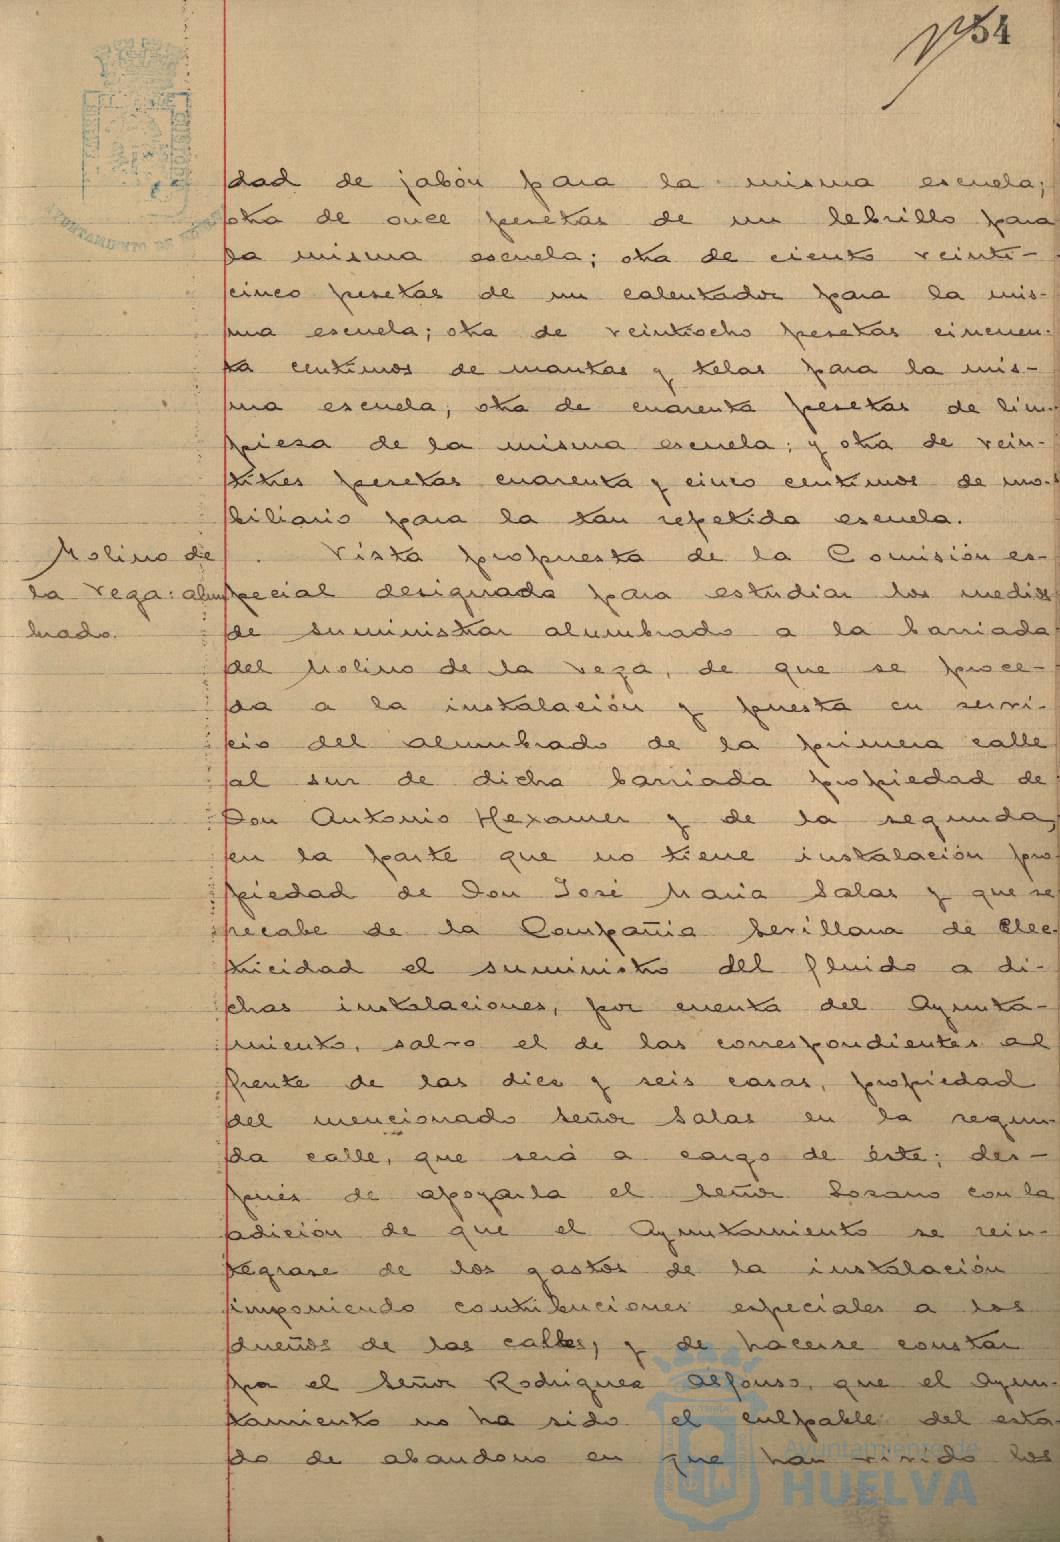 54
AYUNTAMIENTO DE
dad de jabón para la misma escuela;
otra de once pesetas de un lebrillo para
la misma escuela; otra de ciento veinti-
cinco pesetas de un calentador para la mis-
ma escuela; otra de veintiocho pesetas cincuen-
ta centimos de mantas y telas para la mis-
ma escuela; otra de cuarenta pesetas de lim-
pieza de la misma escuela; y otra de vein-
titres pesetas cuarenta y cinco centimos de mo-
biliario para la tan repetida escuela.
Molino de
la Vega: alum
brado.
Vista propuesta de la Comisión es-
pecial designada para estudiar los medios
de suministrar alumbrado a la barriada
del Molino de la Vega, de que se proce-
da a la instalación y puesta en servi-
cio del alumbrado de la primera calle
al sur de dicha barriada propiedad de
Don Antonio Hexamer y de la segunda,
en la parte que no tiene instalación pro-
piedad de Don José Maria Salas y que se
recabe de la Compañia Sevillana de Elec-
tricidad el suministro del fluido a di-
chas instalaciones, por cuenta del Ayunta-
miento, salvo el de las correspondientes al
frente de las diez y seis casas, propiedad
del mencionado Señor Salas en la segun-
da calle, que será a cargo de éste; des-
pués de apoyarla el Señor Lozano con la
adición de que el Ayuntamiento se rein-
tegrase de los gastos de la instalación
imponiendo contribuciones especiales a los
dueños de las calles, y de hacerse constar
por el Señor Rodriguez Alfonso, que el Ayun-
tamiento no ha sido el culpable del esta-
do de abandono en que han vivido los
Ayuntamiento de
HUELVA